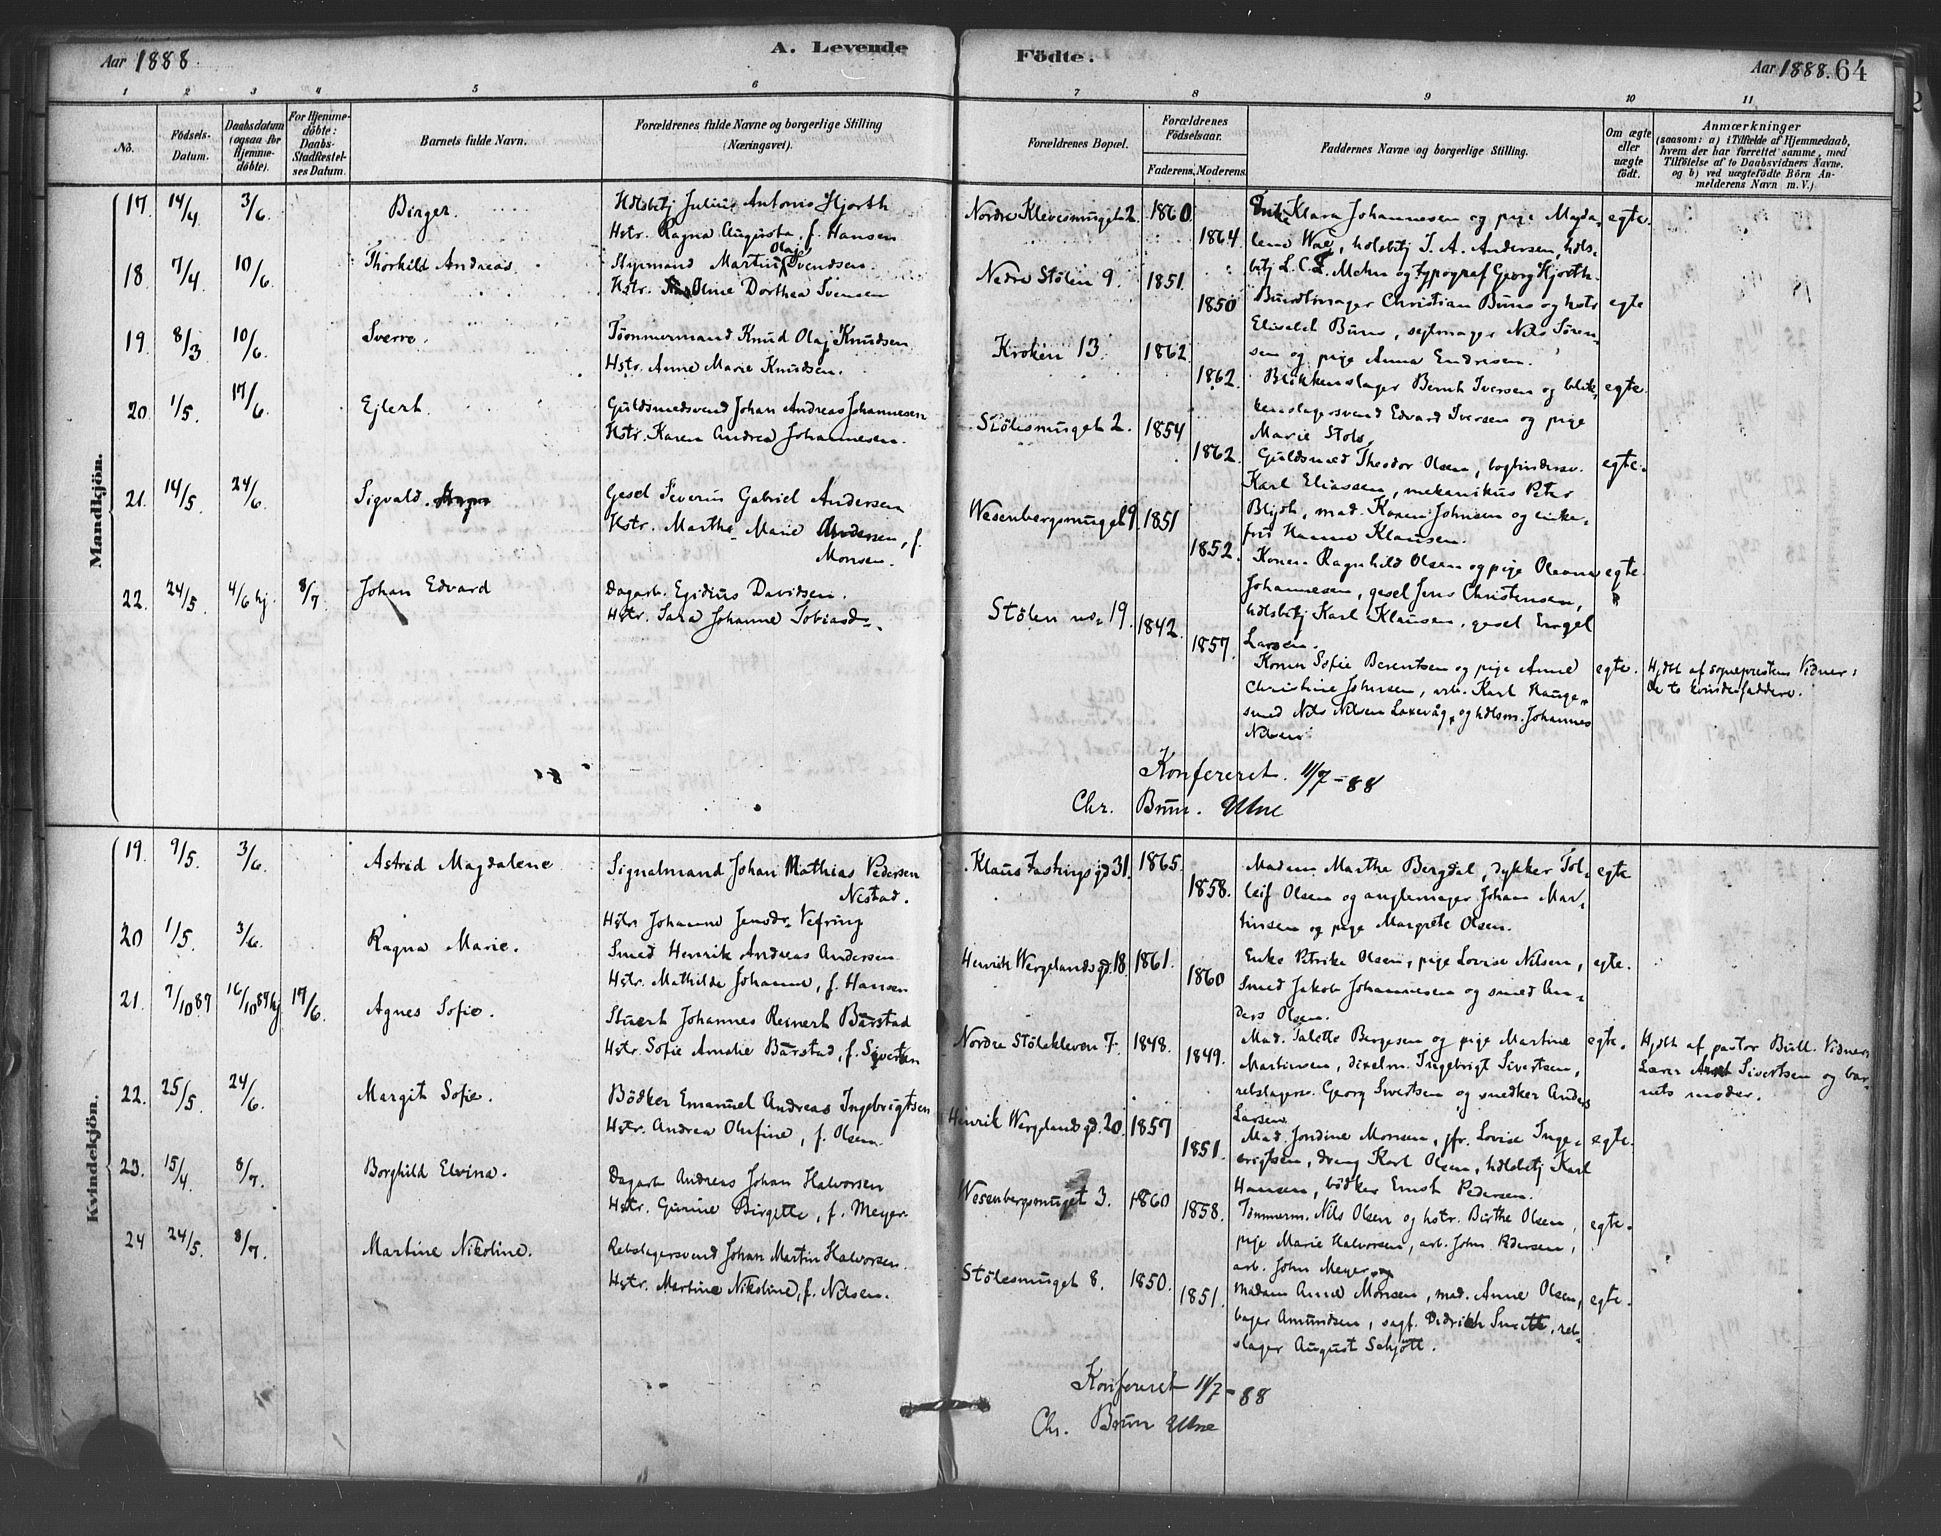 Aar 1888.
A. Levende
Födte.
Aar 1888. 64
1 2 3 4 5 6 7 8 9 10 11
No.
Födsels-Datum.
Daabsdatum (ogsaa for Hjemme-döbte).
For Hjemme-döbte: Daabs-Stadfæstel-ses Datum.
Barnets fulde Navn.
Forældrenes fulde Navne og borgerlige Stilling (Næringsvei).
Forældrenes Bopæl.
Forældrenes Födselsaar.
Faderens. Moderens.
Faddernes Navne og borgerlige Stilling.
Om ægte eller uægte födt.
Anmærkninger
(saasom: a) i Tilfælde af Hjemmedaab, hvem der har forrettet samme, med Tilföielse af to Daabsvidners Navne, og b) ved uægtefödte Börn An-melderens Navn m. V.).
Mandkjön.
17. 14/4 3/6. Birger.
Hdlsbtj Julius Antonis Hjorth
Hstr. Ragna Augusta, f. Hansen
Nordre Klevesmuget 2. 1860 1864
Enke Klara Johannesen og pige Magda-
lene Wæg, hdlsbtj J. A. Andersen, hdls-
btj L. C. Mehn og typograf Georg Hjorth.
egte.
18 7/4 10/6 Thorkild Andreas.
Styrmand Martin Olaj Svendsen.
Hstr. Oline Dorthea Svensen
Nedre Stølen 9. 1851. 1850
Bundtmager Christian Buns og hstr
Elisabeth Buns, sejlmager Nils Søren-
sen og pige Anna Endresen.
egte
19. 8/3 10/6. Sverre.
Tømmermand Knud Olaj Knudsen
Hstr. Anne Marie Knudsen.
Kroken 13. 1862. 1862.
Blikkenslager Bernh Iversen og blik-
kenslagersvend Edvard Iversen og pige
Marie Stols.
egte.
20. 1/5. 17/6. Ejlert.
Guldsmedsvend Johan Andreas Johannesen
Hstr. Karen Andrea Johannesen.
Stølesmuget 2. 1854 1862.
Guldsmed Theodor Olsen, bogbindersv.
Karl Eliassen, mekanikus Peter
Blydt, mad. Karen Johnsen og enke-
fru Hanna Klausen.
egte.
21. 14/5 24/6. Sigvald.
Gesel Severin Gabriel Andersen
Hstr. Marthe Marie Andersen, f.
Monsen.
Wesenbergsmuget 9. 1851 1852.
Konen Ragnhild Olsen og pige Oleane
Johannesen, gesel Jens Christensen,
hdlsbtj Karl Klausen, gesel Engel
Larsen.
egte.
22. 24/5. 4/6 hj. 8/7. Johan Edvard
Dagarb. Egidius Davidsen.
Hstr. Sara Johanne Tobiasd.
Stølen no. 19. 1842. 1857.
Konen Sofie Berentsen og pige Anne
Christine Johnsen, arb. Karl Hauge,
smed Nils Nilsen Laxevåg, og hdlsm. Johannes
Nilsen.
egte.
Hjdbt af sognepresten Vidner:
de to kvindefaddere.
Konfereret. 11/7-88
Chr. Brun. Utne
Kvindekjön.
19. 9/5. 3/6. Astrid Magdalene
Signalmand Johan Mathias Pedersen
Nestad.
Hstr Johanne Jensdr. Vefring
Klaus Fastings gd 31. 1865. 1858.
Madam Marthe Bergdal, dykker Tol-
leif Olsen og anglemager Johan Mar-
tinsen og pige Margrete Olsen.
egte
20 1/5. 3/6. Ragna Marie.
Smed Henrik Andreas Andersen
Hstr. Mathilde Johanne, f. Hansen
Henrik Wergelands gd. 18. 1861. 1860
Enke Petrike Olsen, pige Lovise Nilsen,
Smed Jakob Johannesen og smed An-
ders Olsen.
egte.
21. 7/10 87 16/10 87 hj 17/6. Agnes Sofie.
Stuert Johannes Reinert Bårstad
Hstr. Sofie Amalie Bårstad, f. Sivertsen
Nordre Stølekleven 7. 1848. 1849.
Mad. Talette Børgesen og pige Martine
Martinsen, dixelm. Ingebrigt Sivertsen,
rebslagersv. Georg Sivertsen og snedker Anders
Larsen
egte.
Hjdbt af pastor Bull. Vidner:
Lærer Sivertsen og bar-
nets moder.
22. 25/5 24/6. Margit Sofie.
Bödker Emanuel Andreas Ingebrigtsen
Hstr. Andrea Olufine, f. Olsen.
Henrik Wergelands gd. 20. 1857 1851.
Mad. Jordine Monsen, jfr. Lovise Inge-
brigtsen, dreng Karl Olsen, hdlsbtj Karl
Hansen, bödker Ernst Pedersen.
egte.
23. 15/4. 8/7. Borghild Elvina.
Dagarb Andreas Johan Halvorsen
Hstr. Gurine Birgitte, f. Meyer.
Wesenbergsmuget 3. 1860 1858.
Tømmerm. Nils Olsen og hstr. Birthe Olsen,
pige Marie Halvorsen, arb. John Pedersen,
arb. John Meyer.
egte.
24 24/5. 8/7. Martine Nikoline.
Rebslagersvend Johan Martin Halvorsen.
Hstr. Martine Nikoline, f. Nilsen.
Stølesmuget 8. 1850. 1851.
Madam Anne Monsen, mad. Anne Olsen,
bager Amundsen, sagf. Didrikh Smitt, reb-
slager August Schjött.
egte.
Konfereret 11/7-88
Chr. Brun Utne